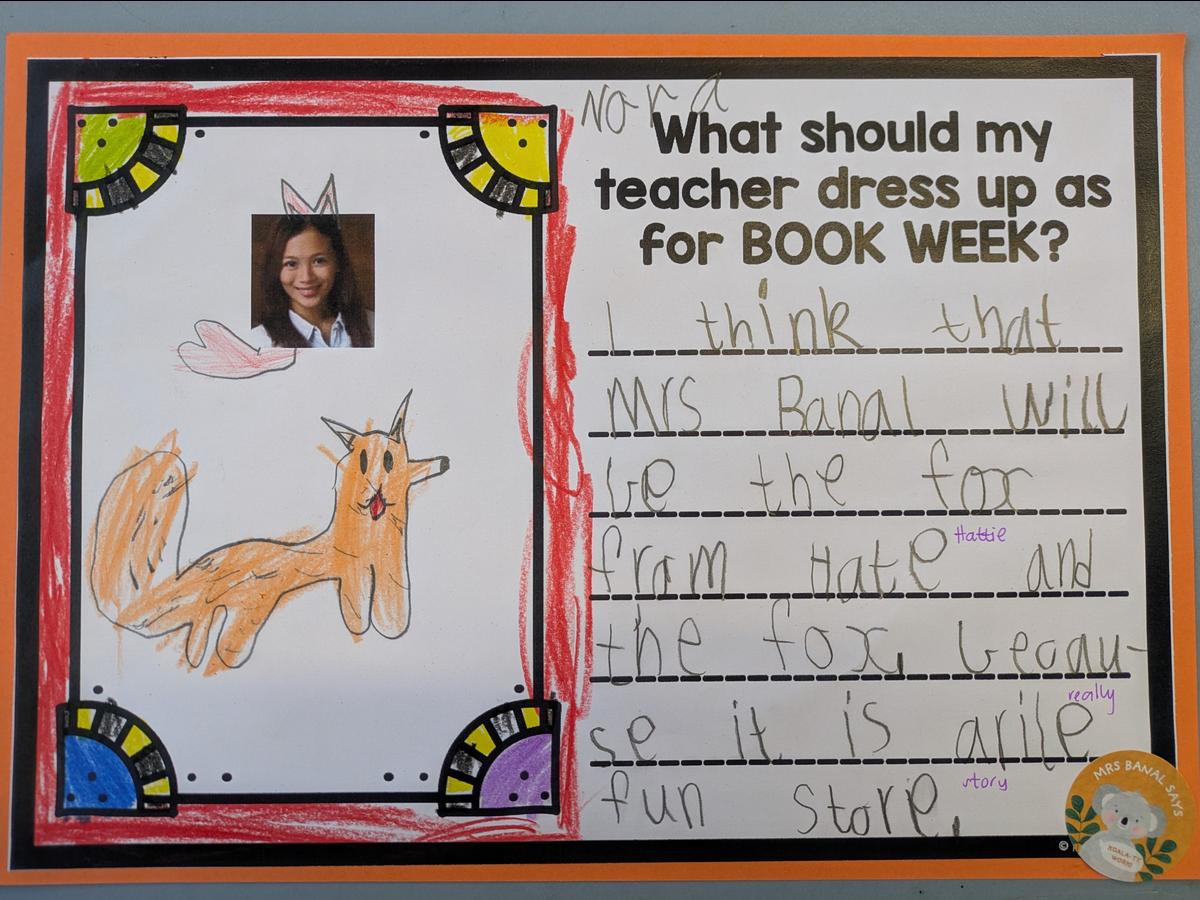 Nora
What should my
teacher dress up as
for BOOK WEEK?
I think that
Mrs Banal will
be the fox
from Hate Hattie and
the fox, becau-
se it is arile really
fun store. story
MRS BANAL SAYS
KOALA-TY
WORK!
©